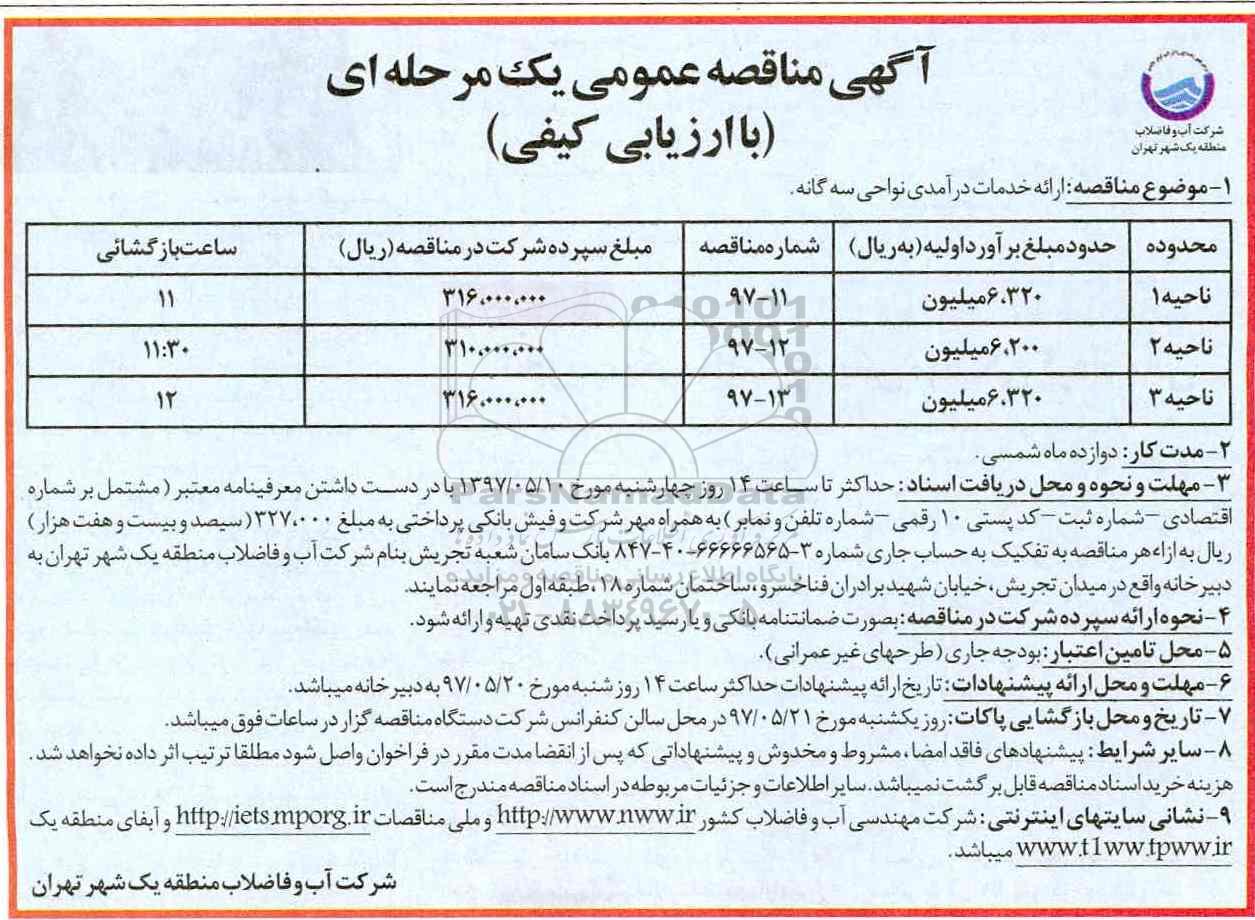 آگهی مناقصه عمومی یک مرحله ای
(با ارزیابی کیفی)
شرکت آب و فاضلاب
منطقه یک شهر تهران
۱- موضوع مناقصه: ارائه خدمات درآمدی نواحی سه گانه.
محدوده | حدود مبلغ برآورد اولیه (به ریال) | شماره مناقصه | مبلغ سپرده شرکت در مناقصه (ریال) | ساعت بازگشائی
ناحیه ۱ | ۶،۳۲۰ میلیون | ۹۷-۱۱ | ۳۱۶،۰۰۰،۰۰۰ | ۱۱
ناحیه ۲ | ۶،۲۰۰ میلیون | ۹۷-۱۲ | ۳۱۰،۰۰۰،۰۰۰ | ۱۱:۳۰
ناحیه ۳ | ۶،۳۲۰ میلیون | ۹۷-۱۳ | ۳۱۶،۰۰۰،۰۰۰ | ۱۲
۲- مدت کار: دوازده ماه شمسی.
۳- مهلت و نحوه و محل دریافت اسناد: حداکثر تا ساعت ۱۴ روز چهارشنبه مورخ ۱۳۹۷/۰۵/۱۰ با در دست داشتن معرفینامه معتبر (مشتمل بر شماره
اقتصادی – شماره ثبت – کد پستی ۱۰ رقمی – شماره تلفن و نمابر) به همراه مهر شرکت و فیش بانکی پرداختی به مبلغ ۳۲۷،۰۰۰ (سیصد و بیست و هفت هزار)
ریال به ازاء هر مناقصه به تفکیک به حساب جاری شماره ۳-۶۶۶۶۶۵۶۵-۴۰-۸۴۷ بانک سامان شعبه تجریش بنام شرکت آب و فاضلاب منطقه یک شهر تهران به
دبیرخانه واقع در میدان تجریش، خیابان شهید برادران فناخسرو، ساختمان شماره ۱۸، طبقه اول مراجعه نمایند.
۴- نحوه ارائه سپرده شرکت در مناقصه: بصورت ضمانتنامه بانکی و یا رسید پرداخت نقدی تهیه و ارائه شود.
۵- محل تامین اعتبار: بودجه جاری (طرحهای غیر عمرانی).
۶- مهلت و محل ارائه پیشنهادات: تاریخ ارائه پیشنهادات حداکثر ساعت ۱۴ روز شنبه مورخ ۹۷/۰۵/۲۰ به دبیرخانه میباشد.
۷- تاریخ و محل بازگشایی پاکات: روز یکشنبه مورخ ۹۷/۰۵/۲۱ در محل سالن کنفرانس شرکت دستگاه مناقصه گزار در ساعات فوق میباشد.
۸- سایر شرایط: پیشنهادهای فاقد امضا، مشروط و مخدوش و پیشنهاداتی که پس از انقضا مدت مقرر در فراخوان واصل شود مطلقا ترتیب اثر داده نخواهد شد.
هزینه خرید اسناد مناقصه قابل برگشت نمیباشد. سایر اطلاعات و جزئیات مربوطه در اسناد مناقصه مندرج است.
۹- نشانی سایتهای اینترنتی: شرکت مهندسی آب و فاضلاب کشور http://www.nww.ir و ملی مناقصات http://iets.mporg.ir و آبفای منطقه یک
www.t1ww.tpww.ir میباشد.
شرکت آب و فاضلاب منطقه یک شهر تهران
ParsNamadData
پایگاه اطلاع رسانی مناقصه و مزایده
۰۲۱-۸۸۳۴۹۶۷۰-۵